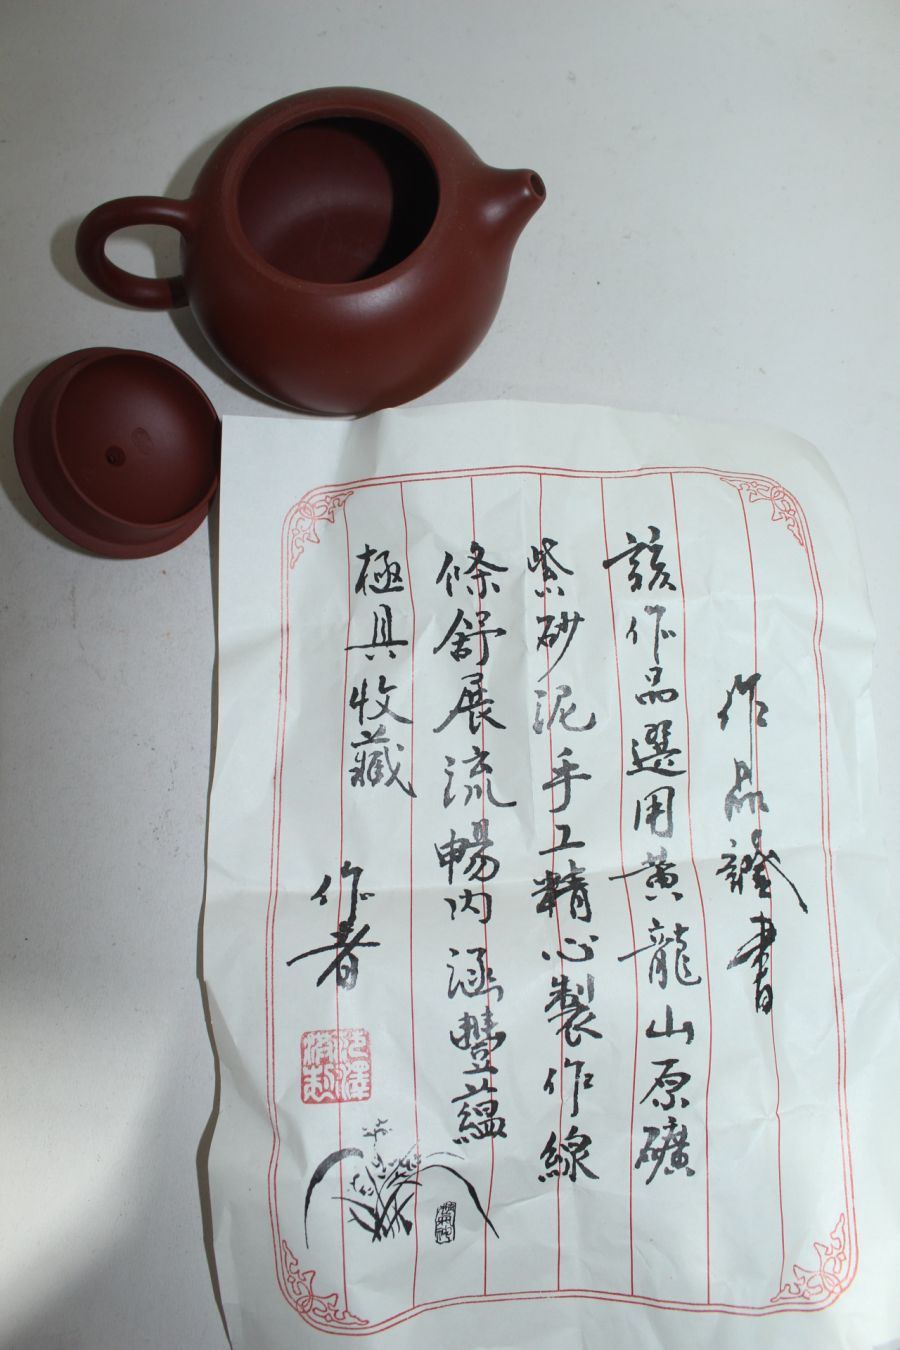 作品證書
該作品選用黃龍山原礦
紫砂泥手工精心製作線
條舒展流暢內涵豐蘊
極具收藏
作者